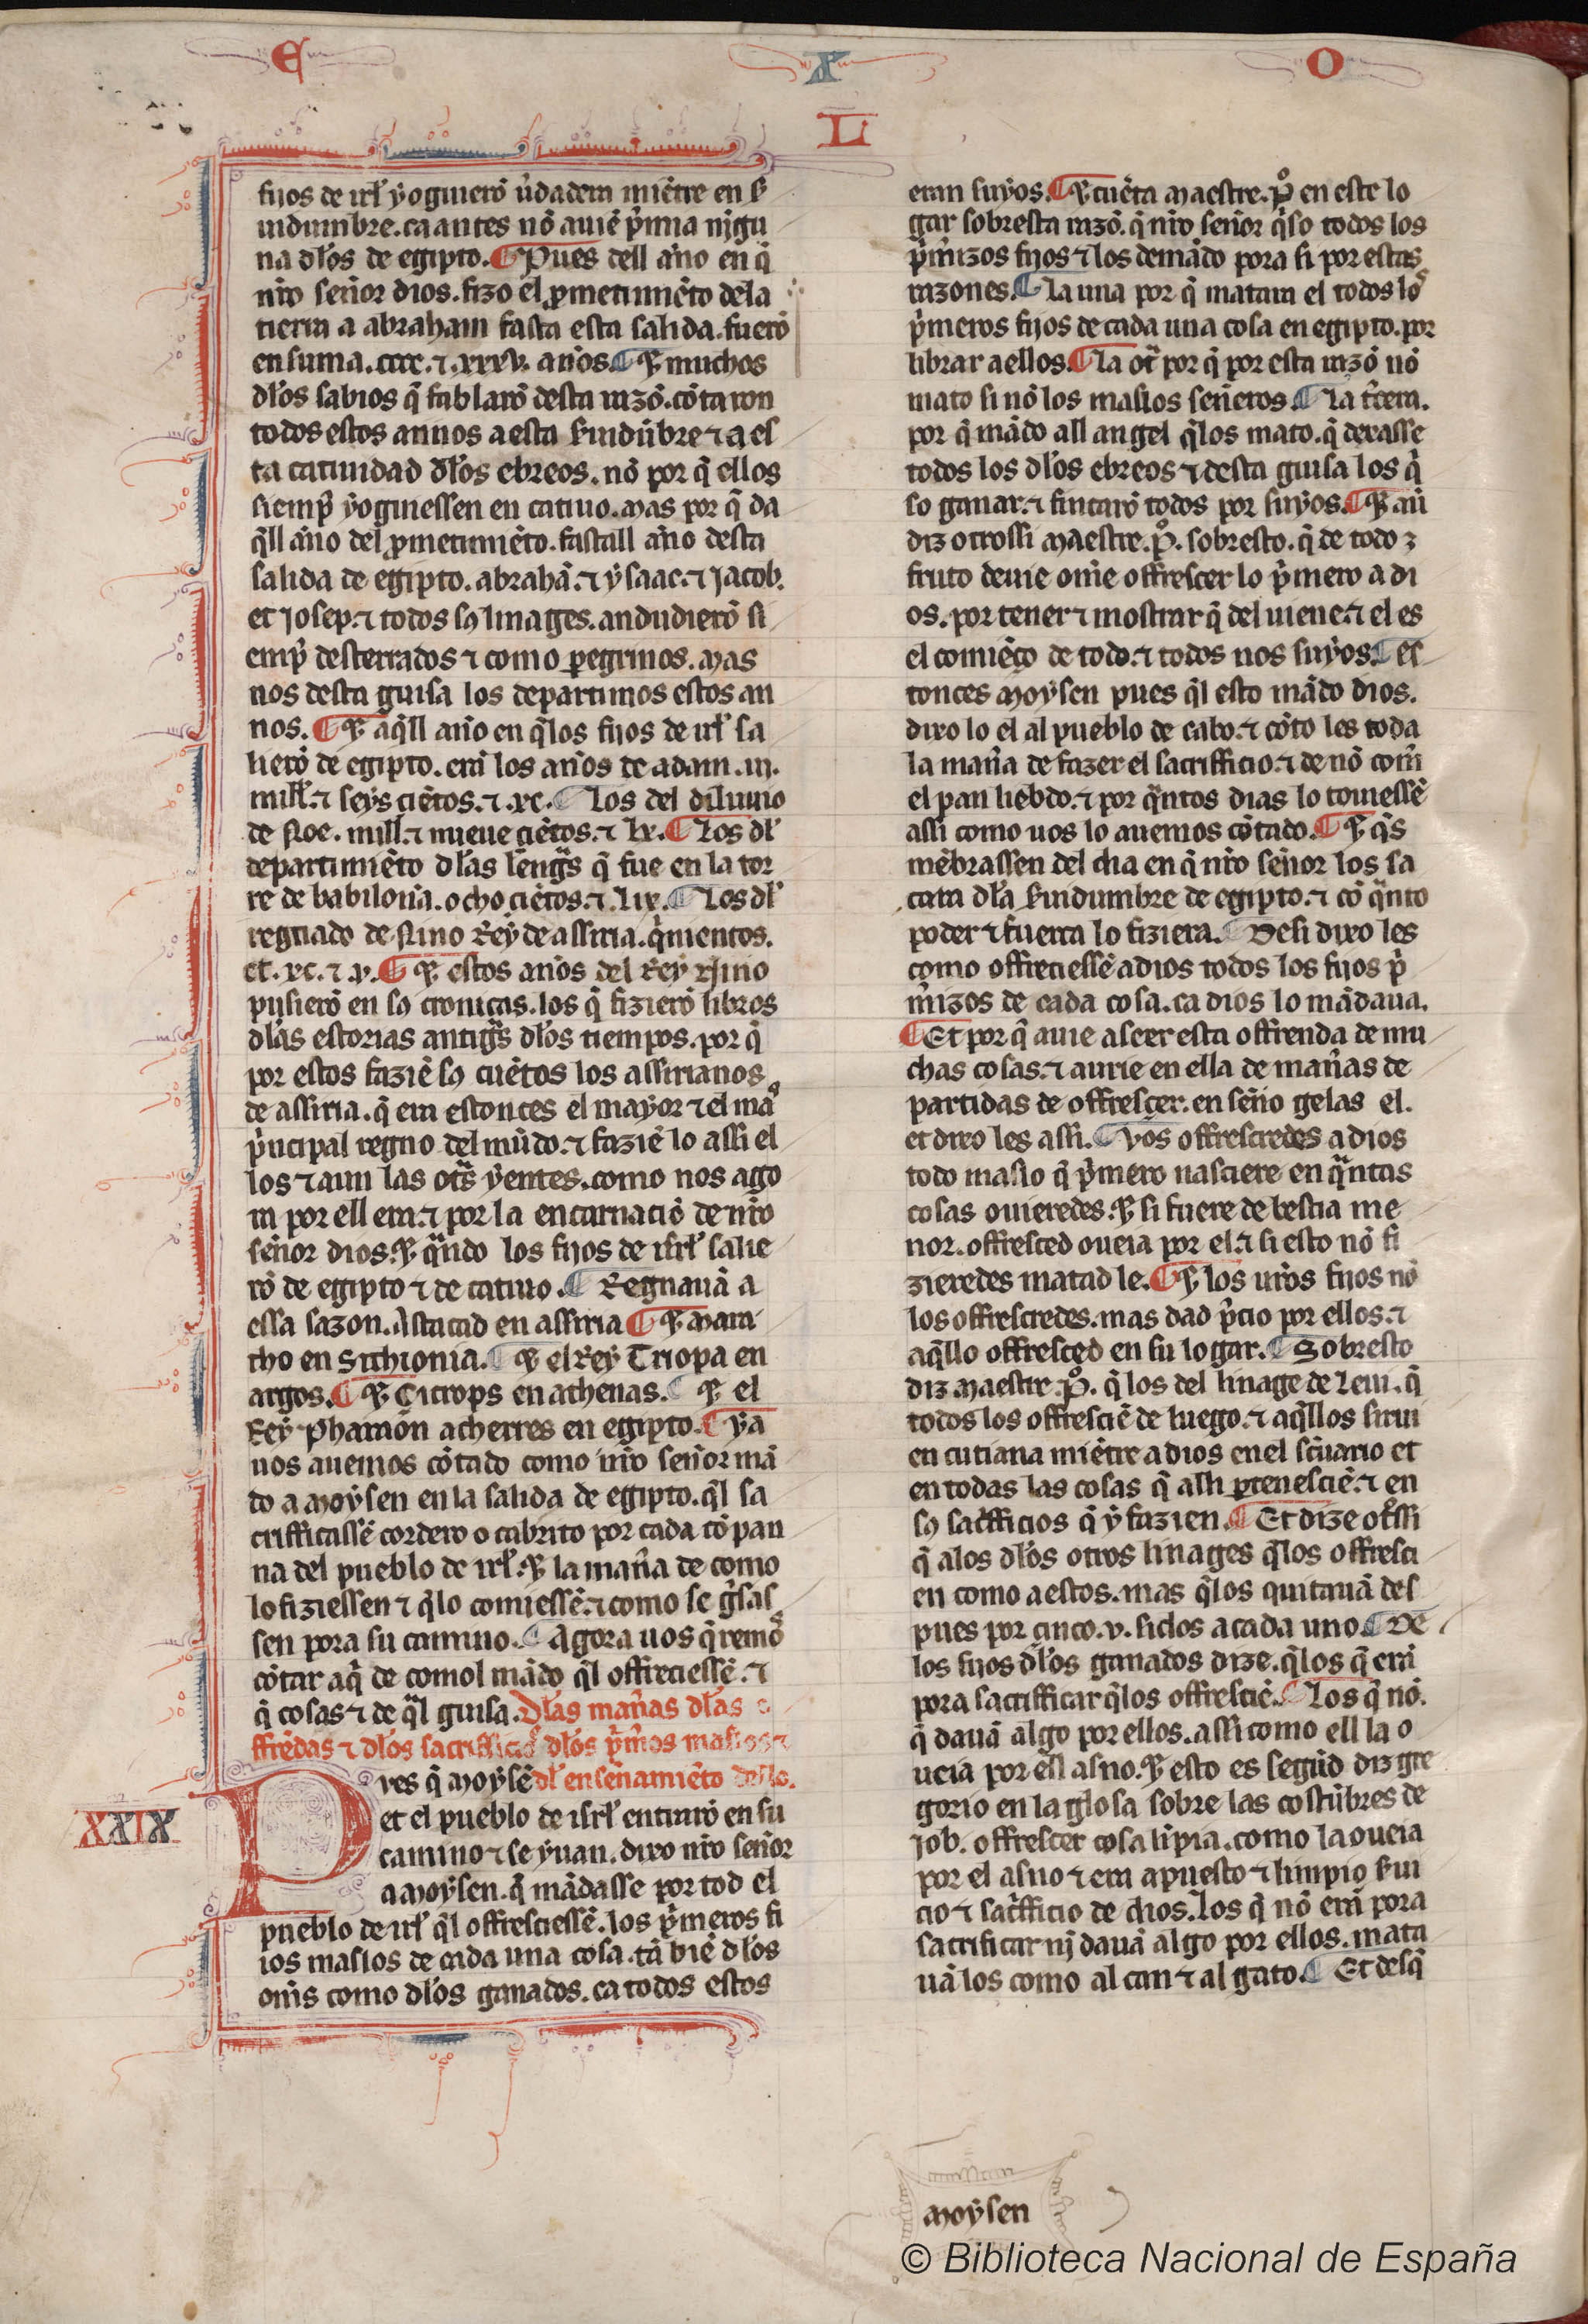 E X O
LI
fijos de irl̃ yoguierõ ṽdadera miẽtre en s̃
uidumbre. ca antes nõ auiẽ p̃mia nĩgu
na dl̃os de egipto. ¶ Pues dell año en q̃
nr̃o señor dios. fizo el ꝓmetimiẽto de la
tierra a abraham fasta esta salida. fuerõ
en suma. cccc. ⁊. xxxv. años. ¶ ⁊ muchos
dl̃os sabios q̃ fablarõ desta razõ. cõtaron
todos estos annos a esta s̃uidũbre ⁊ a es
ta catiuidad dl̃os ebreos. nõ por q̃ ellos
siemp̃ yoguiessen en catiuo. mas por q̃ da
q̃ll año del ꝓmetimiẽto. fastall año desta
salida de egipto. abrahã. ⁊ ysaac. ⁊ Jacob.
et Josep. ⁊ todos sꝯ linages. andudierõ si
emp̃ desterrados ⁊ como ꝑegrinos. mas
nos desta guisa los departimos estos an
nos. ¶ ⁊ aq̃ll año en q̃ los fijos de irl̃ sa
lierõ de egipto. erã los años de adam. iij.
mill. ⁊ seys ciẽtos. ⁊. xc. ¶ Los del diluuio
de Noe. mill. ⁊ nueue ciẽtos. ⁊ lx. ¶ Los dl̃
departimiẽto dl̃as lẽguas q̃ fue en la tor
re de babiloña. ocho ciẽtos. ⁊. lix. ¶ Los dl̃
regnado de Nino Rey de assiria. q̃nientos.
et. xc. ⁊. v. ¶ ⁊ estos años del Rey Nino
pusierõ en sꝯ cronicas. los q̃ fizierõ libros
dl̃as estorias antig̃s dl̃os tiempos. por q̃
por estos faziẽ sꝯ cuẽtos los assirianos
de assiria. q̃ era estonces el mayor ⁊ el mas
p̃ncipal regno del mũdo. ⁊ faziẽ lo assi el
los ⁊ aun las otr̃s yentes. como nos ago
ra por ell era. ⁊ por la encarnaciõ de nr̃o
señor dios. ⁊ q̃ndo los fijos de isrl̃ salie
rõ de egipto ⁊ de catiuo. ¶ Regnauã a
essa sazon. Astacad en assiria ¶ ⁊ mara
tho en Sithionia. ¶ ⁊ el Rey Triopa en
argos. ¶ ⁊ Cicrops en athenas. ¶ ⁊ el
Rey Pharaon acherres en egipto. ¶ ya
uos auemos cõtado como nr̃o señor mã
do a moysen en la salida de egipto. q̃l sa
crifficassẽ cordero o cabrito por cada cõpan
na del pueblo de irl̃. ⁊ la mañra de como
lo fiziessen ⁊ q̃ lo comiessẽ. ⁊ como se g̃sas
sen pora su camino. ¶ Agora uos q̃remos
cõtar aq̃ de comol mãdo q̃l offreciessẽ. ⁊
q̃ cosas ⁊ de q̃l guisa. Dl̃as mañas dl̃as o
ffrẽdas ⁊ dl̃os sacrifficios dl̃os p̃m̃os maslos ⁊
XXIX
Pues q̃ moysẽ dl̃ enseñamiẽto dello.
et el pueblo de isrl̃ entrarõ en su
camino ⁊ se yuan. dixo nr̃o señor
a moysen. q̃ mãdasse por tod el
pueblo de irl̃ q̃l offresciessẽ. los p̃meros fi
ios maslos de cada una cosa. tã biẽ dl̃os
om̃s como dl̃os ganados. ca todos estos
eran suyos. ¶ ⁊ cuẽta maestre. p̊ en este lo
gar sobresta razõ. q̃ nr̃o señor q̃so todos los
p̃mizos fijos ⁊ los demãdo pora si por estas
razones. ¶ La una por q̃ matara el todos los
p̃meros fijos de cada una cosa en egipto. por
librar a ellos. ¶ La otr̃ por q̃ por esta razõ nõ
mato si nõ los maslos señeros. ¶ La t̃cera.
por q̃ mãdo all angel q̃ los mato. q̃ dexasse
todos los dl̃os ebreos ⁊ desta guisa los q̃
so ganar. ⁊ fincarõ todos por suyos. ¶ ⁊ aũ
diz otrossi maestre. p̊. sobresto. q̃ de todo
fruto deuie om̃e offrescer lo p̃mero a di
os. por tener ⁊ mostrar q̃ del uiene. ⁊ el es
el comiẽço de todo. ⁊ todos nos suyos. ¶ es
tonces moysen pues q̃l esto mãdo dios.
dixo lo el al pueblo de cabo. ⁊ cõto les toda
la mañra de fazer el sacrifficio. ⁊ de nõ com̃
el pan liebdo. ⁊ por q̃ntos dias lo touiessẽ
assi como uos lo auemos cõtado. ¶ ⁊ q̃s
mẽbrassen del dia en q̃ nr̃o señor los sa
cara dl̃a s̃uidumbre de egipto. ⁊ cõ q̃nto
poder ⁊ fuerça lo fiziera. ¶ Desi dixo les
como offreciessẽ a dios todos los fijos p̃
m̃izos de cada cosa. ca dios lo mãdaua.
¶ Et por q̃ auie a seer esta offrenda de mu
chas cosas. ⁊ aurie en ella de mañas de
partidas de offresçer. enseño gelas el.
et dixo les assi. ¶ Vos offrescredes a dios
todo maslo q̃ p̃mero nasciere en q̃ntas
cosas ouieredes. ⁊ si fuere de bestia me
nor. offresced oueia por el. ⁊ si esto nõ fi
zieredes matad le. ¶ ⁊ los ur̃os fijos nõ
los offrescredes. mas dad p̃cio por ellos. ⁊
aq̃llo offresced en su logar. ¶ Sobresto
diz maestre. p̊. q̃ los del linage de Leui. q̃
todos los offresciẽ de luego. ⁊ aq̃llos siruı
en cutiana miẽtre a dios en el sc̃uario et
en todas las cosas q̃ assi ꝑtenesciẽ. ⁊ en
sꝯ sac̃fficios q̃ y fazien. ¶ Et dize otr̃ssi
q̃ a los dl̃os otros linages q̃ los offresci
en como a estos. mas q̃ los quitauã des
pues por cinco. v. siclos a cada uno. ¶ De
los fijos dl̃os ganados dize. q̃ los q̃ erã
pora sacrifficar q̃ los offresciẽ. ¶ Los q̃ nõ.
q̃ dauã algo por ellos. assi como ell la o
ueia por ell asno. ⁊ esto es segũd diz gre
gorio en la glosa sobre las costũbres de
Job. offrescer cosa lĩpia. como la oueia
por el asno ⁊ era apuesto ⁊ limpio s̃ui
cio ⁊ sac̃fficio de dios. los q̃ nõ erã pora
sacrificar nĩ dauã algo por ellos. mata
uã los como al can ⁊ al gato. ¶ Et desq̃
moysen
© Biblioteca Nacional de España